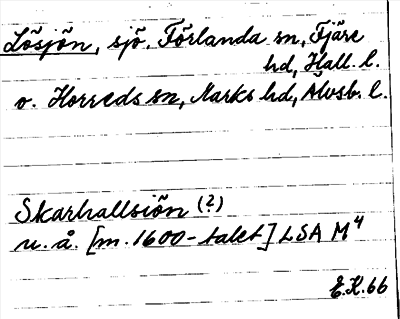 Lösjön, sjö. Förlanda sn, Fjäre
hd, Hall. l.
o. Horreds sn, Marks hd, Älvsb. l.
Skarhallsiön (?)
u. å. [m. 1600-talet] LSA M⁴
E.K. 66